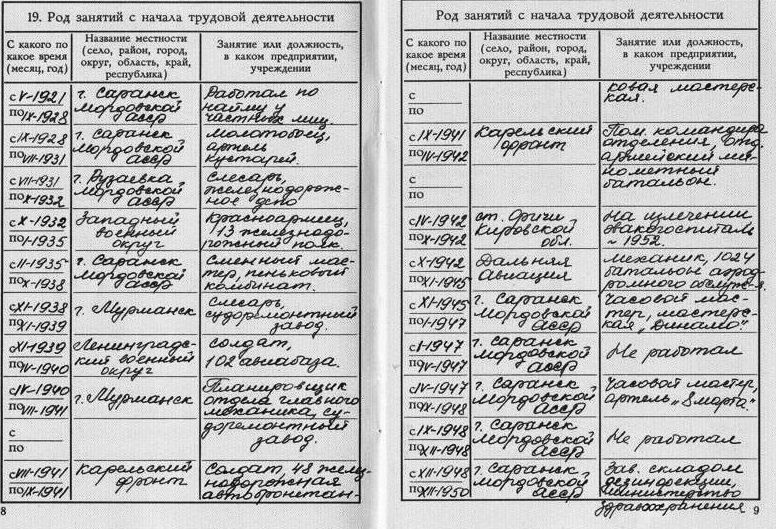 19. Род занятий с начала трудовой деятельности
С какого по какое время (месяц, год)
Название местности (село, район, город, округ, область, край, республика)
Занятие или должность, в каком предприятии, учреждении
с V-1921
по IX-1928
г. Саранск
Мордовской
АССР
Работал по
найму у
частных лиц.
с IX-1928
по VIII-1931
г. Саранск
Мордовской
АССР
Молотобоец,
артель
кустарей.
с VII-1931
по X-1932
г. Рузаевка
Мордовской
АССР
Слесарь,
железнодорож-
ное депо
с X-1932
по I-1935
Западный
военный
округ
Красноармиец,
13 железнодо-
рожный полк.
с II-1935
по X-1938
г. Саранск
Мордовской
АССР
Сменный мас-
тер, пеньковый
комбинат.
с XI-1938
по XI-1939
г. Мурманск
Слесарь,
судоремонтный
завод.
с XI-1939
по IV-1940
Ленинградс-
кий военный
округ
Солдат,
102 авиабаза.
с IV-1940
по VIII-1941
г. Мурманск
Планировщик
отдела главного
механика, су-
доремонтный
завод.
с
по
с VIII-1941
по IX-1941
Карельский
фронт
Солдат, 48 желез-
нодорожная
автобронетан-
8
Род занятий с начала трудовой деятельности
С какого по какое время (месяц, год)
Название местности (село, район, город, округ, область, край, республика)
Занятие или должность, в каком предприятии, учреждении
с
по
ковая мастерс-
кая.
с IX-1941
по IV-1942
Карельский
фронт
Пом. командира
отделения, отд.
армейский ми-
нометный
батальон.
с
по
с IV-1942
по X-1942
ст. Оричи
Кировской
обл.
На излечении
эвакогоспиталь
~ 1952.
с X-1942
по XI-1945
Дальняя
Авиация
Механик, 1024
батальон аэрод-
ромного обслуж-я.
с XI-1945
по I-1947
г. Саранск
Мордовской
АССР
Часовой мас-
тер, мастерс-
кая „Динамо".
с I-1947
по IV-1947
г. Саранск
Мордовской
АССР
Не работал
с IV-1947
по IX-1948
г. Саранск
Мордовской
АССР
Часовой мастер,
артель „8 марта".
с IX-1948
по XII-1948
г. Саранск
Мордовской
АССР
Не работал
с XII-1948
по XII-1950
г. Саранск
Мордовской
АССР
Зав. складом
дезинфекции,
Министерство
Здравоохранения
9